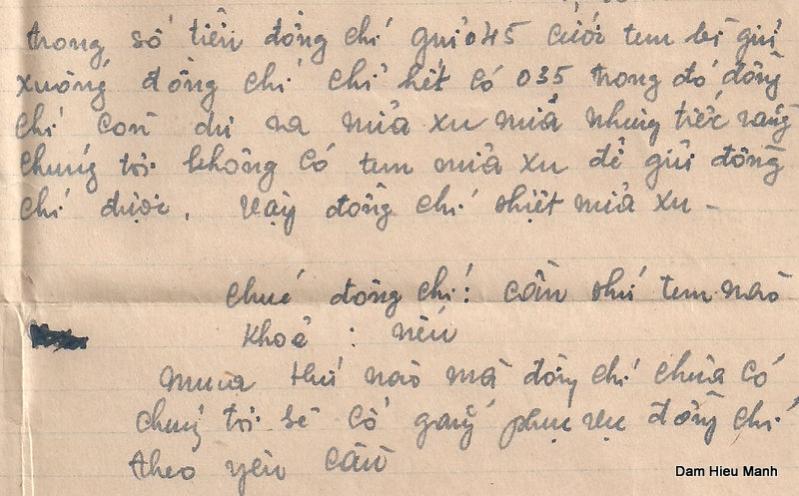 trong số tiền đồng chí gửi 045 cước tem bì gửi
xuống đồng chí chỉ hết có 035 trong đó đồng
chí còn dư ra nửa xu nữa nhưng tiếc rằng
chúng tôi không có tem nửa xu để gửi đồng
chí được. Vậy đồng chí thiệt nửa xu -
chúc đồng chí: cần thứ tem nào
khoẻ : nếu
mua thứ nào mà đồng chí chưa có
chúng tôi sẽ cố gắng phục vụ đồng chí
theo yêu cầu
Dam Hieu Manh